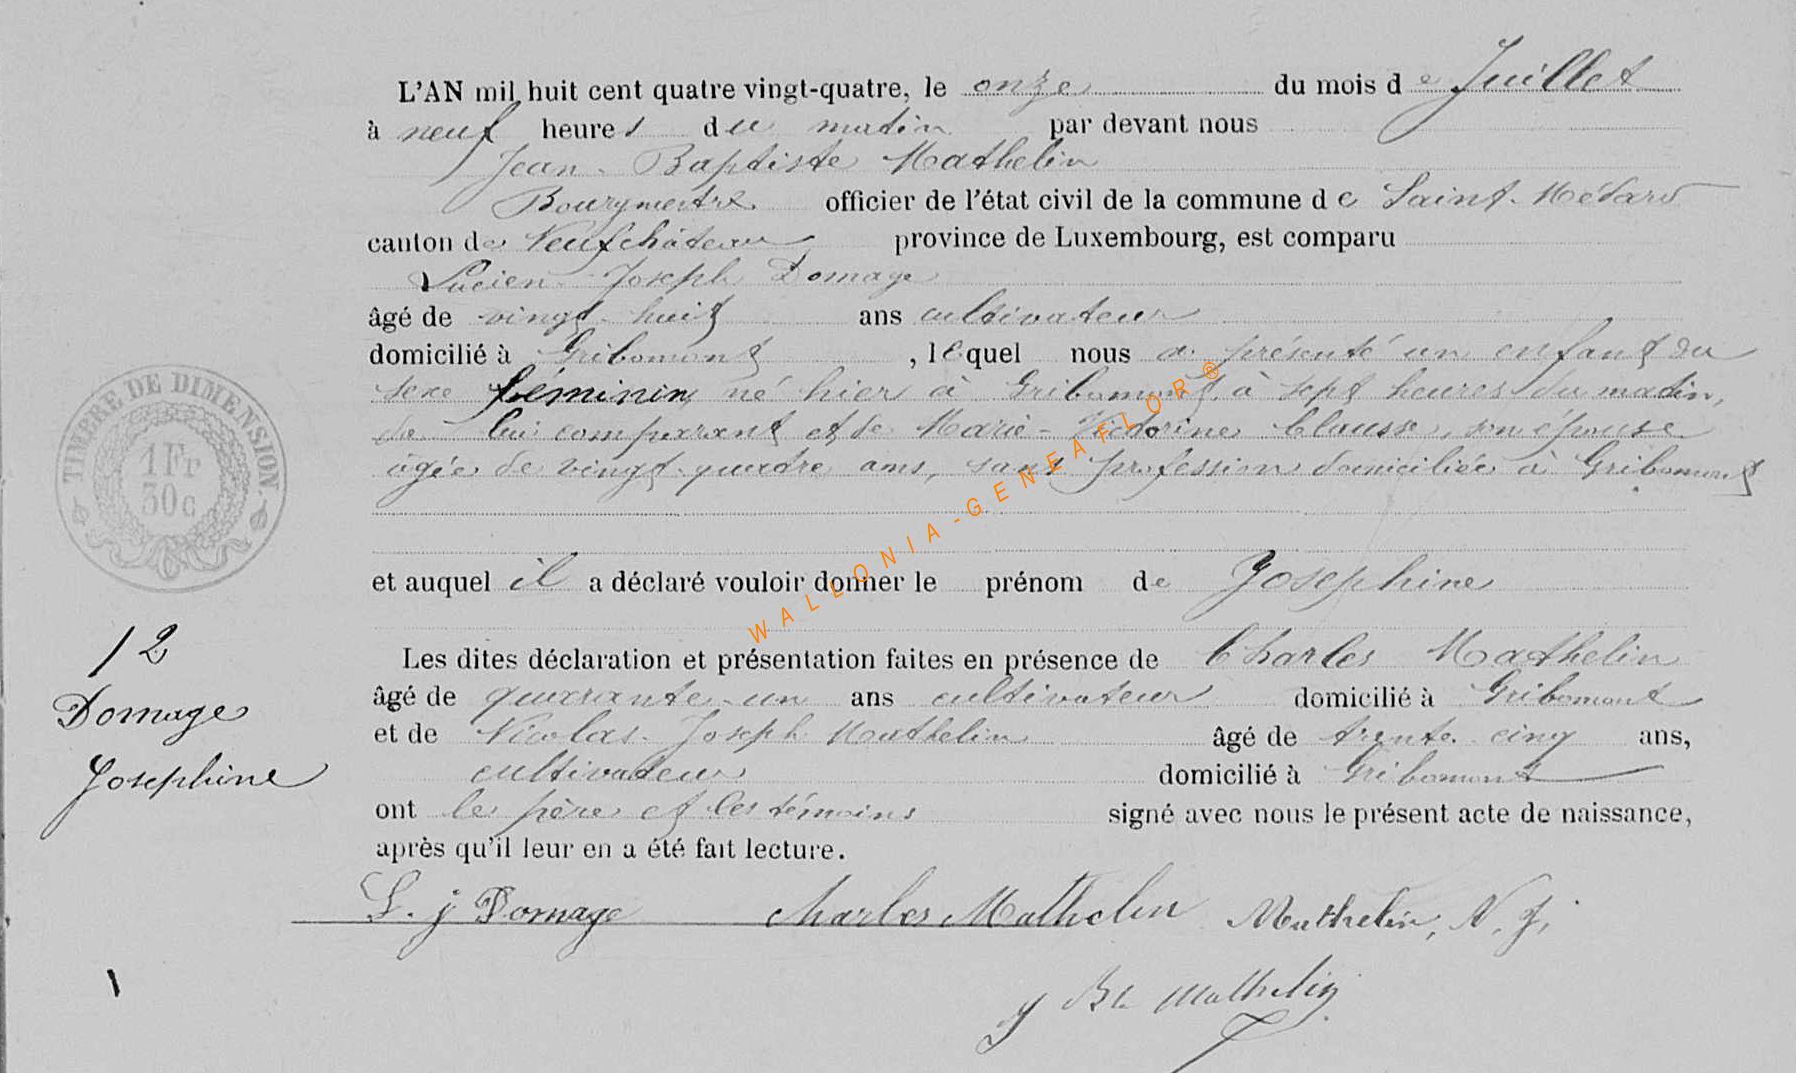 L'AN mil huit cent quatre vingt-quatre, le onze du mois de Juillet
à neuf heures du matin par devant nous
Jean-Baptiste Mathelin
Bourgmestre officier de l'état civil de la commune de Saint-Médard
canton de Neufchâteau province de Luxembourg, est comparu
Lucien Joseph Domage
âgé de vingt-huit ans cultivateur
domicilié à Gribomont, lequel nous a présenté un enfant du
sexe féminin né hier à Gribomont, à sept heures du matin,
de lui comparant et de Marie-Victorine Clausse, son épouse
âgée de vingt-quatre ans, sans profession domiciliée à Gribomont
et auquel il a déclaré vouloir donner le prénom de Josephine
Les dites déclaration et présentation faites en présence de Charles Mathelin
âgé de quarante-un ans cultivateur domicilié à Gribomont
et de Nicolas-Joseph Mathelin âgé de trente-cinq ans,
cultivateur domicilié à Gribomont
ont le père et les témoins signé avec nous le présent acte de naissance,
après qu'il leur en a été fait lecture.
L. j Domage Charles Mathelin Mathelin, N. J.
J Bte Mathelin
TIMBRE DE DIMENSION.
1Fr
30c
12
Domage
Josephine
WALLONIA-GENEAFLOR®